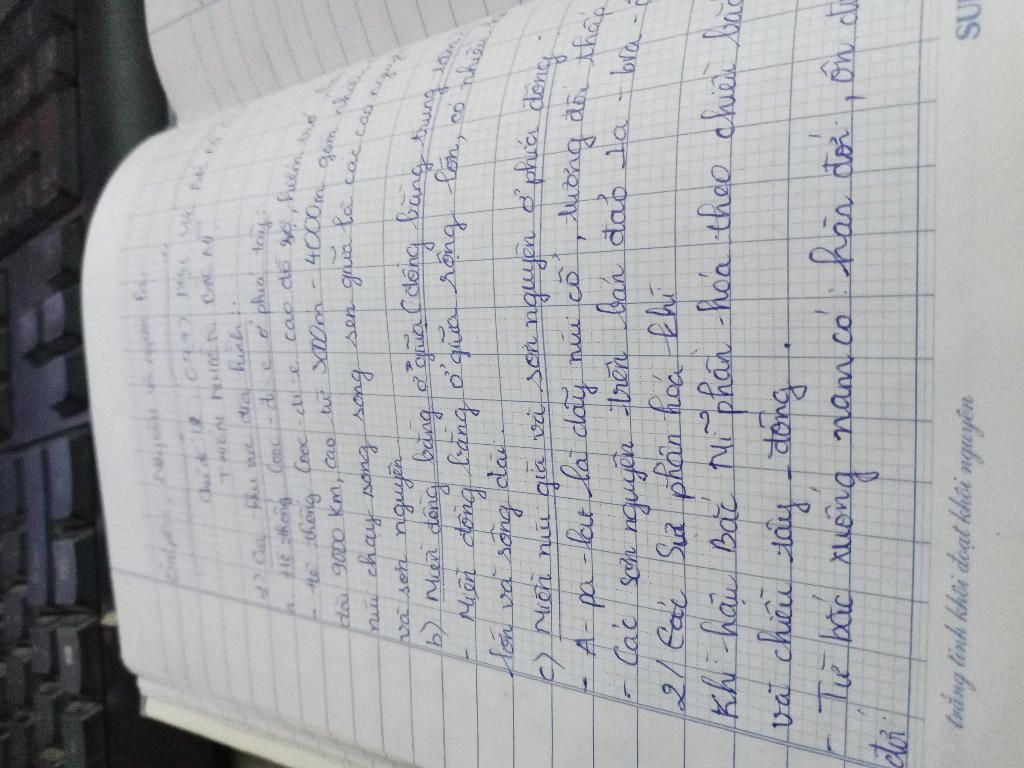 1) Các khu vực địa hình:
a. Hệ thống Cooc-di-e ở phía tây:
- Hệ thống Cooc-di-e cao đồ sộ, hiểm trở
dài 9000 km, cao từ 3000m - 4000m gồm nhiều
núi chạy song song xen giữa là các cao nguyên
và sơn nguyên
b) Miền đồng bằng ở giữa (đồng bằng trung tâm)
- Miền đồng bằng ở giữa rộng lớn, có nhiều
lớn và sông dài.
c) Miền núi già và sơn nguyên ở phía đông.
- A-pa-lat là dãy núi cổ, tương đối thấp
- Các sơn nguyên trên bán đảo La-bra-
2/ Các Sự phân hoá khí
Khí-hậu Bắc Mĩ phân-hóa theo chiều bắc
và chiều tây-đông.
- Từ bắc xuống nam có: hàn đới, ôn đới
đới.
trắng tinh khôi đoạt khôi nguyên
SU